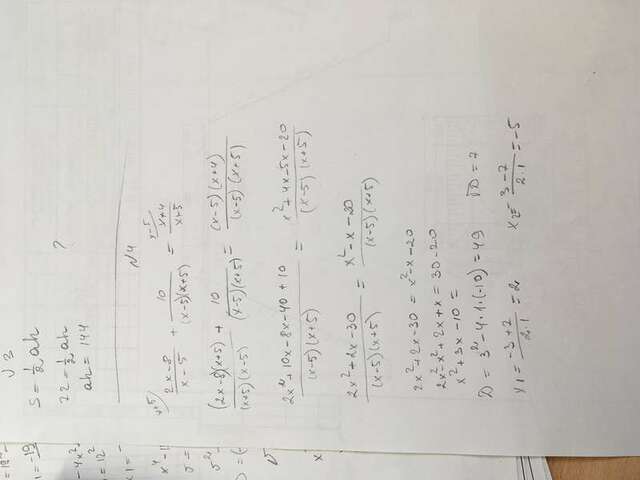 √3
S = 1/2 ah
72 = 1/2 ah ?
ah = 144
№4
x+5) (2x-8)/(x-5) + 10/((x-5)(x+5)) = x-5) (x+4)/(x+5)
((2x-8)(x+5))/((x+5)(x-5)) + 10/((x-5)(x+5)) = ((x-5)(x+4))/((x-5)(x+5))
(2x²+10x-8x-40+10)/((x-5)(x+5)) = (x²+4x-5x-20)/((x-5)(x+5))
(2x²+2x-30)/((x-5)(x+5)) = (x²-x-20)/((x-5)(x+5))
2x²+2x-30 = x²-x-20
2x²-x²+2x+x = 30-20
x²+3x-10 =
D = 3²-4·1·(-10) = 49 √D = 7
x1 = (-3+7)/(2·1) = 2 x2 = (3-7)/(2·1) = -5